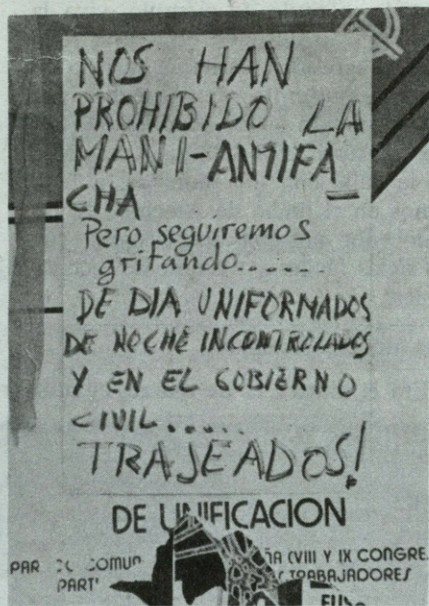 NOS HAN
PROHIBIDO LA
MANI-ANTIFA
CHA
Pero seguiremos
gritando......
DE DIA UNIFORMADOS
DE NOCHE INCONTROLADOS
Y EN EL GOBIERNO
CIVIL.....
TRAJEADOS!
DE UNIFICACION
(VIII Y IX CONGRE
TRABAJADORES